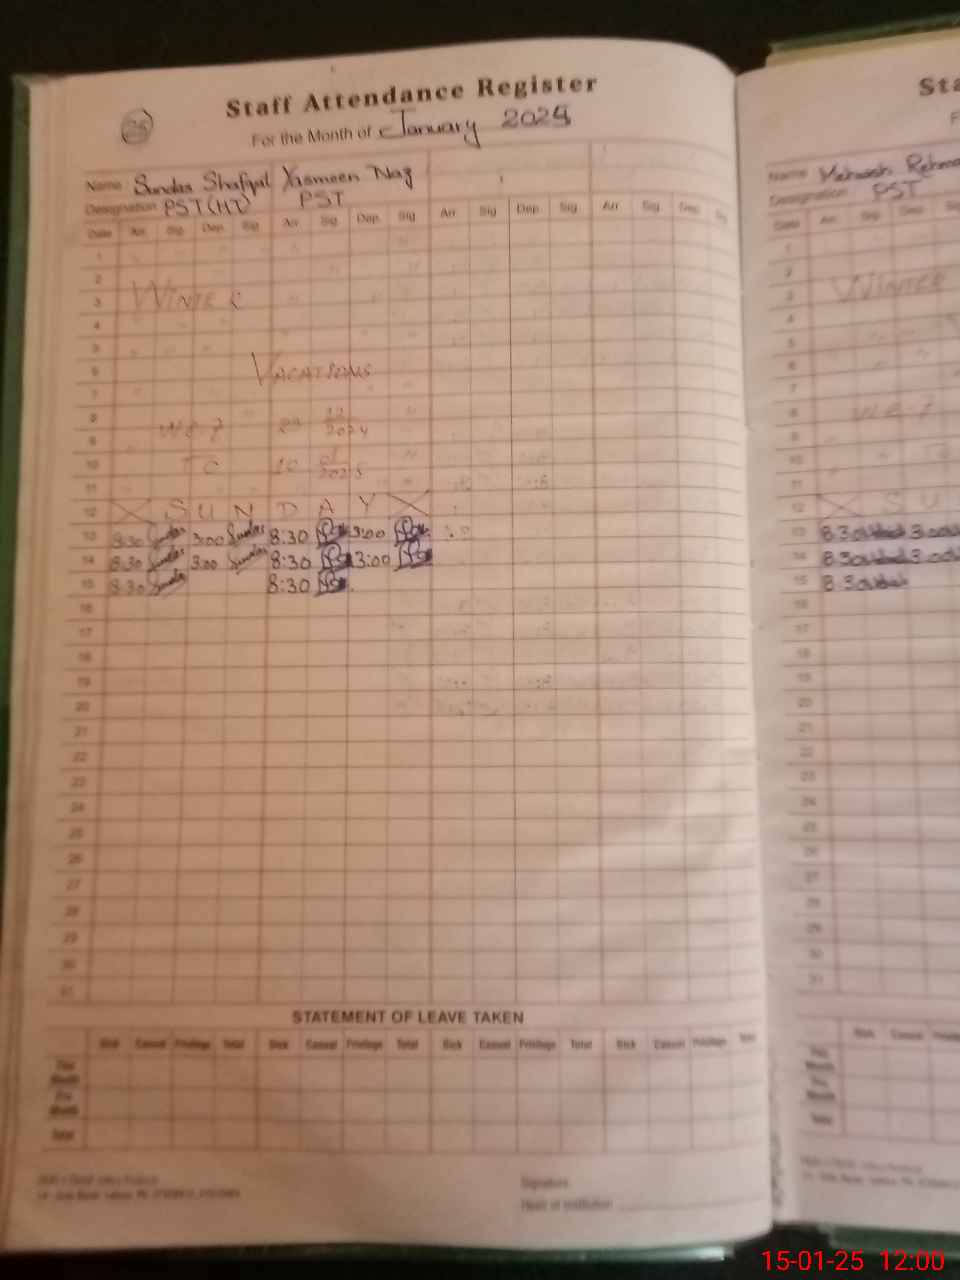 Staff Attendance Register
Sta
25
For the Month of January 2025
Name Sundas Shafqat Yasmeen Naz
Name Mehwash Rehma
Designation PST (HT) PST
Designation PST
Date Arr. Sig. Dep. Sig. Arr. Sig. Dep. Sig. Arr. Sig. Dep. Sig. Arr. Sig. Dep. Sig.
Date Arr. Sig. Dep.
1
2
3 WINTER
4
5
6 VACATIONS
7
8
9 W.E.F 20 12/2024
10 TO 10 01/2025
11
12 SUNDAY
13 8:30 Sundas 3:00 Sundas 8:30 3:00
14 8:30 Sundas 3:00 Sundas 8:30 3:00
15 8:30 Sundas 8:30
16
17
18
19
20
21
22
23
24
25
26
27
28
29
30
31
1
2
3 WINTER
4
5
6
7
8 W.E.F
9
10 TO
11
12 SU
13 8:30 3:00
14 8:30 3:00
15 8:30
16
17
18
19
20
21
22
23
24
25
26
27
28
29
30
31
STATEMENT OF LEAVE TAKEN
Sick Casual Privilege Total Sick Casual Privilege Total Sick Casual Privilege Total Sick Casual Privilege Total
Sick Casual Privilege
This Month
Pre Month
Total
This Month
Pre Month
Total
Signature
Head of Institution
15-01-25 12:00